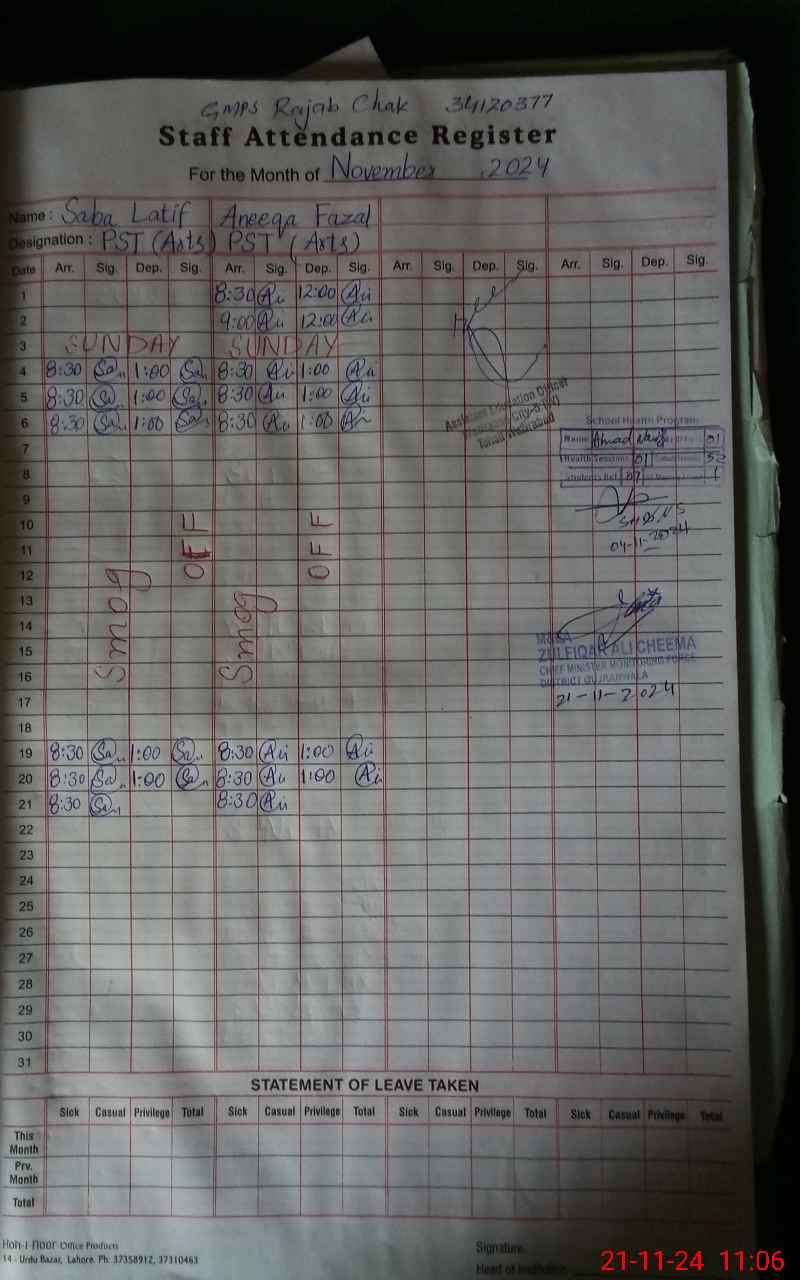 GMPS Rajab Chak 34120377
Staff Attendance Register
For the Month of November, 2024
Name : Saba Latif Aneeqa Fazal
Designation : PST (Arts) PST (Arts)
Date Arr. Sig. Dep. Sig. Arr. Sig. Dep. Sig. Arr. Sig. Dep. Sig. Arr. Sig. Dep. Sig.
1 8:30 12:00
2 9:00 12:00
3 SUNDAY SUNDAY
4 8:30 1:00 8:30 1:00
5 8:30 1:00 8:30 1:00
6 8:30 1:00 8:30 1:00
Assistant Education Officer
School Health Program
7
Name Ahmad 01
8
Health Sessions 01 52
Students Ref 07 1
9
10
11
04-11-2024
12
Smog OFF Smog OFF
13
14
15
ZULFIQAR ALI CHEEMA
16
CHIEF MINISTER MONITORING FORCE
DISTRICT GUJRANWALA
17
21-11-2024
18
19 8:30 1:00 8:30 1:00
20 8:30 1:00 8:30 1:00
21 8:30 8:30
22
23
24
25
26
27
28
29
30
31
STATEMENT OF LEAVE TAKEN
Sick Casual Privilege Total Sick Casual Privilege Total Sick Casual Privilege Total Sick Casual Privilege Total
This
Month
Prv.
Month
Total
Koh-i-noor Office Products
14 - Urdu Bazar, Lahore. Ph: 37358912, 37310463
Signature
Head of Institution
21-11-24 11:06